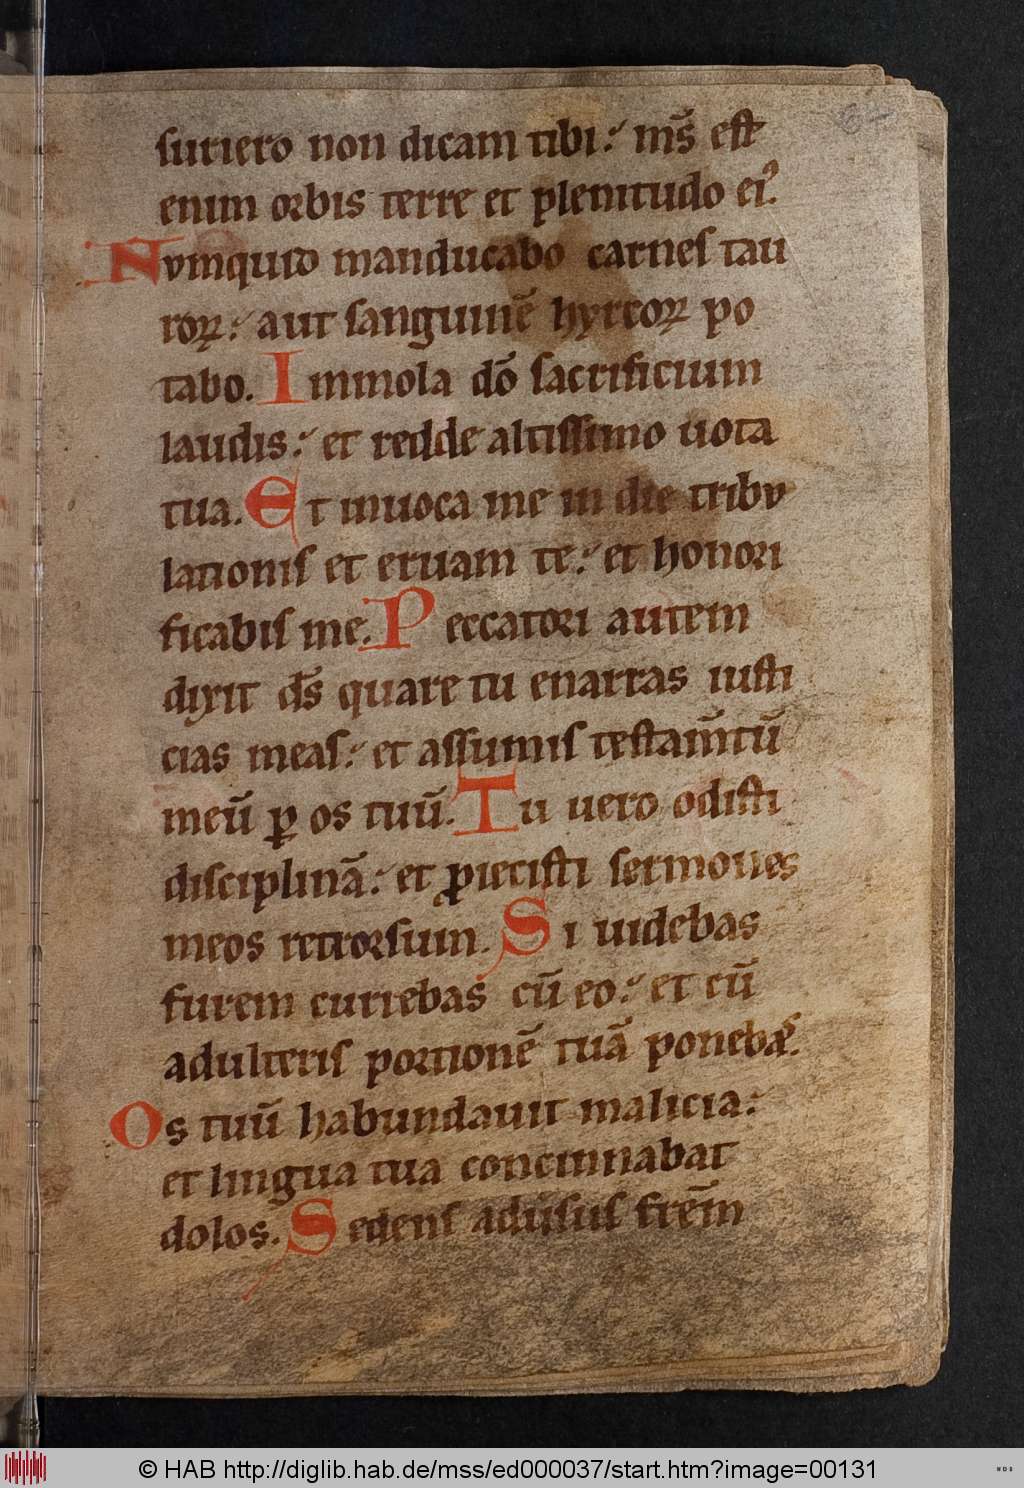 suriero non dicam tibi: ms̄ est
enim orbis terre et plenitudo ei⁹.
Nvmquid manducabo carnes tau
roꝝ: aut sanguinē hyrcoꝝ po
tabo. Immola dō sacrificium
laudis: et redde altissimo uota
tua. Et inuoca me in die tribv
lationis et eruam te: et honori
ficabis me. Peccatori autem
dixit ds̄ quare tu enarras iusti
cias meas: et assumis testam̄tū
meū ꝑ os tuū. Tu uero odisti
disciplinā: et ꝓiecisti sermones
meos retrorsum. Si uidebas
furem currebas cū eo: et cū
adulteris portionē tuā ponebas.
Os tuū habundauit malicia:
et lingua tua concinnabat
dolos. Sedens adūsus frēm
© HAB http://diglib.hab.de/mss/ed000037/start.htm?image=00131